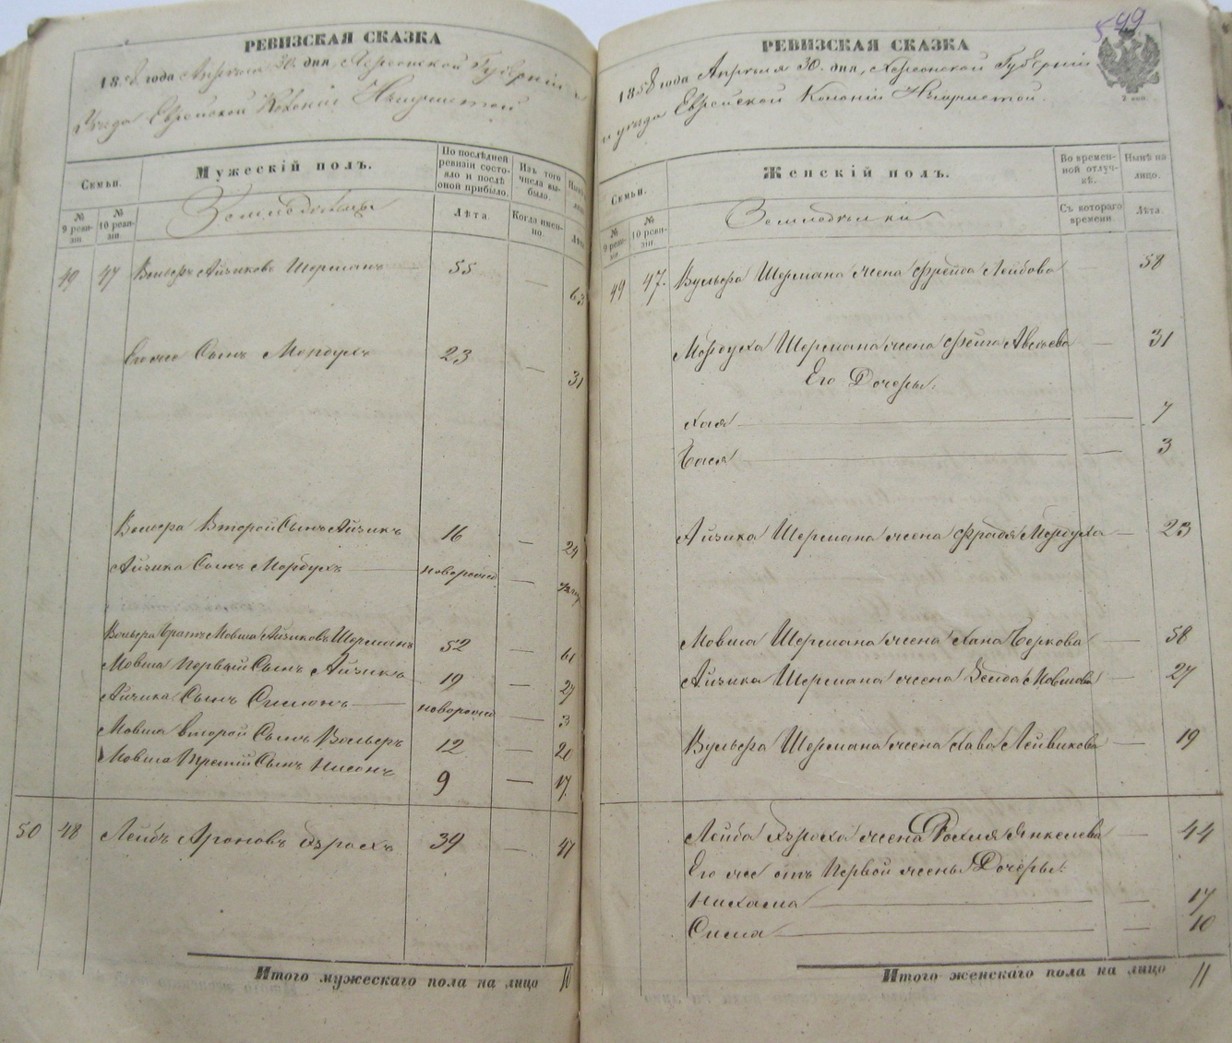 РЕВИЗСКАЯ СКАЗКА
1858 года Апреля 30 дня, Херсонской Губернии и
Уезда Еврейской Колонии
Семьи.
Мужескій полъ.
По послѣдней ревизіи состояло и послѣ оной прибыло.
Изъ того числа выбыло.
№ 9 ревизіи.
№ 10 ревизіи.
Земледельцы
Лѣта.
Когда именно.
Лѣта
49 47 Вольфъ Айзиковъ Шерманъ 55 — 63
Его же Сынъ Мордухъ 23 — 31
Вольфа Второй Сынъ Айзикъ 16 — 24
Айзика Сынъ Мордухъ — новорожд —
Вольфа братъ Мовша Айзиковъ Шерманъ 52 — 61
Мовши Первый Сынъ Айзикъ 19 — 27
Айзика Сынъ Симонъ — новорожд — 3
Мовши второй Сынъ Вольфъ 12 — 20
Мовши Третій Сынъ Нисонъ 9 — 17
50 48 Лейбъ Ароновъ 39 — 47
Итого мужескаго пола на лицо 10
599
РЕВИЗСКАЯ СКАЗКА
1858 года Апреля 30 дня, Херсонской Губерніи
и уезда Еврейской Колоніи
Семьи.
Женскій полъ.
Во временной отлучкѣ.
Нынѣ на лицо.
№ 9 ревизіи.
№ 10 ревизіи.
Земледельки
Съ котораго времени.
Лѣта.
49 47. Вульфа Шермана жена Фрейда Лейбова 58
Мордуха Шермана жена Фейга Авсеева — 31
Его Дочеры.
Хая — 7
Бася — 3
Айзика Шермана жена Фрадя Мордуха — 23
Мовша Шермана жена Хана Беркова — 58
Айзика Шермана жена Зелда Мовшова — 27
Вульфа Шермана жена Хава Лейвикова — 19
Лейба жена Рохля Янкелева — 44
Его же отъ Первой жены Дочеры:
Нихама — 17
Сима — 10
Итого женскаго пола на лицо 11